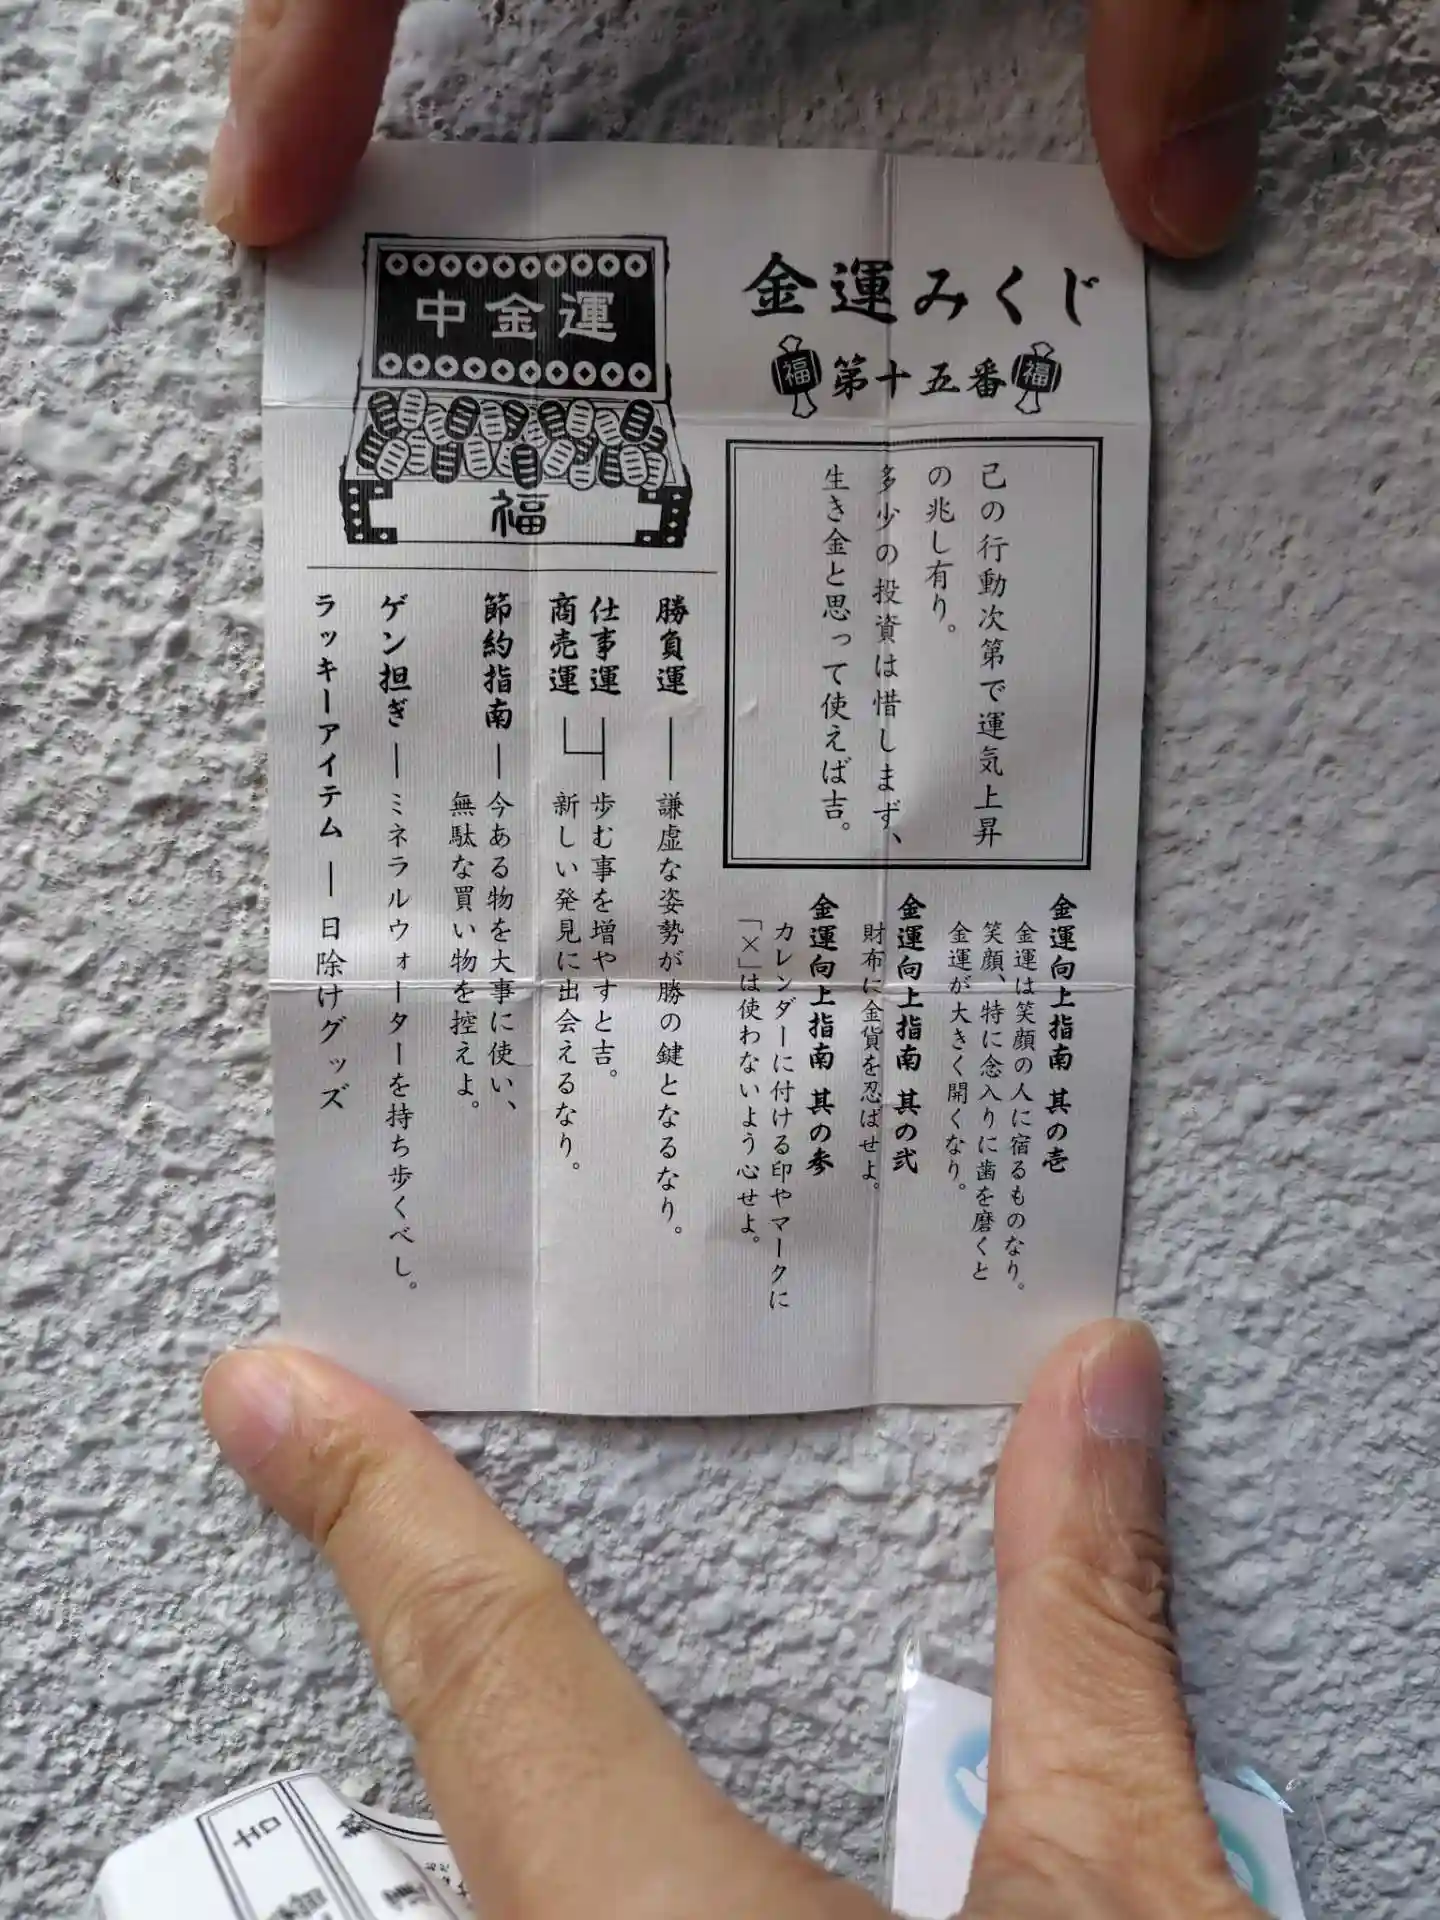 金運みくじ
福 第十五番 福
己の行動次第で運気上昇
の兆し有り。
多少の投資は惜しまず、
生き金と思って使えば吉。
金運向上指南 其の壱
金運は笑顔の人に宿るものなり。
笑顔、特に念入りに歯を磨くと
金運が大きく開くなり。
金運向上指南 其の弐
財布に金貨を忍ばせよ。
金運向上指南 其の参
カレンダーに付ける印やマークに
「×」は使わないよう心せよ。
中金運
福
勝負運 ― 謙虚な姿勢が勝の鍵となるなり。
仕事運
商売運
歩む事を増やすと吉。
新しい発見に出会えるなり。
節約指南 ― 今ある物を大事に使い、
無駄な買い物を控えよ。
ゲン担ぎ ― ミネラルウォーターを持ち歩くべし。
ラッキーアイテム ― 日除けグッズ